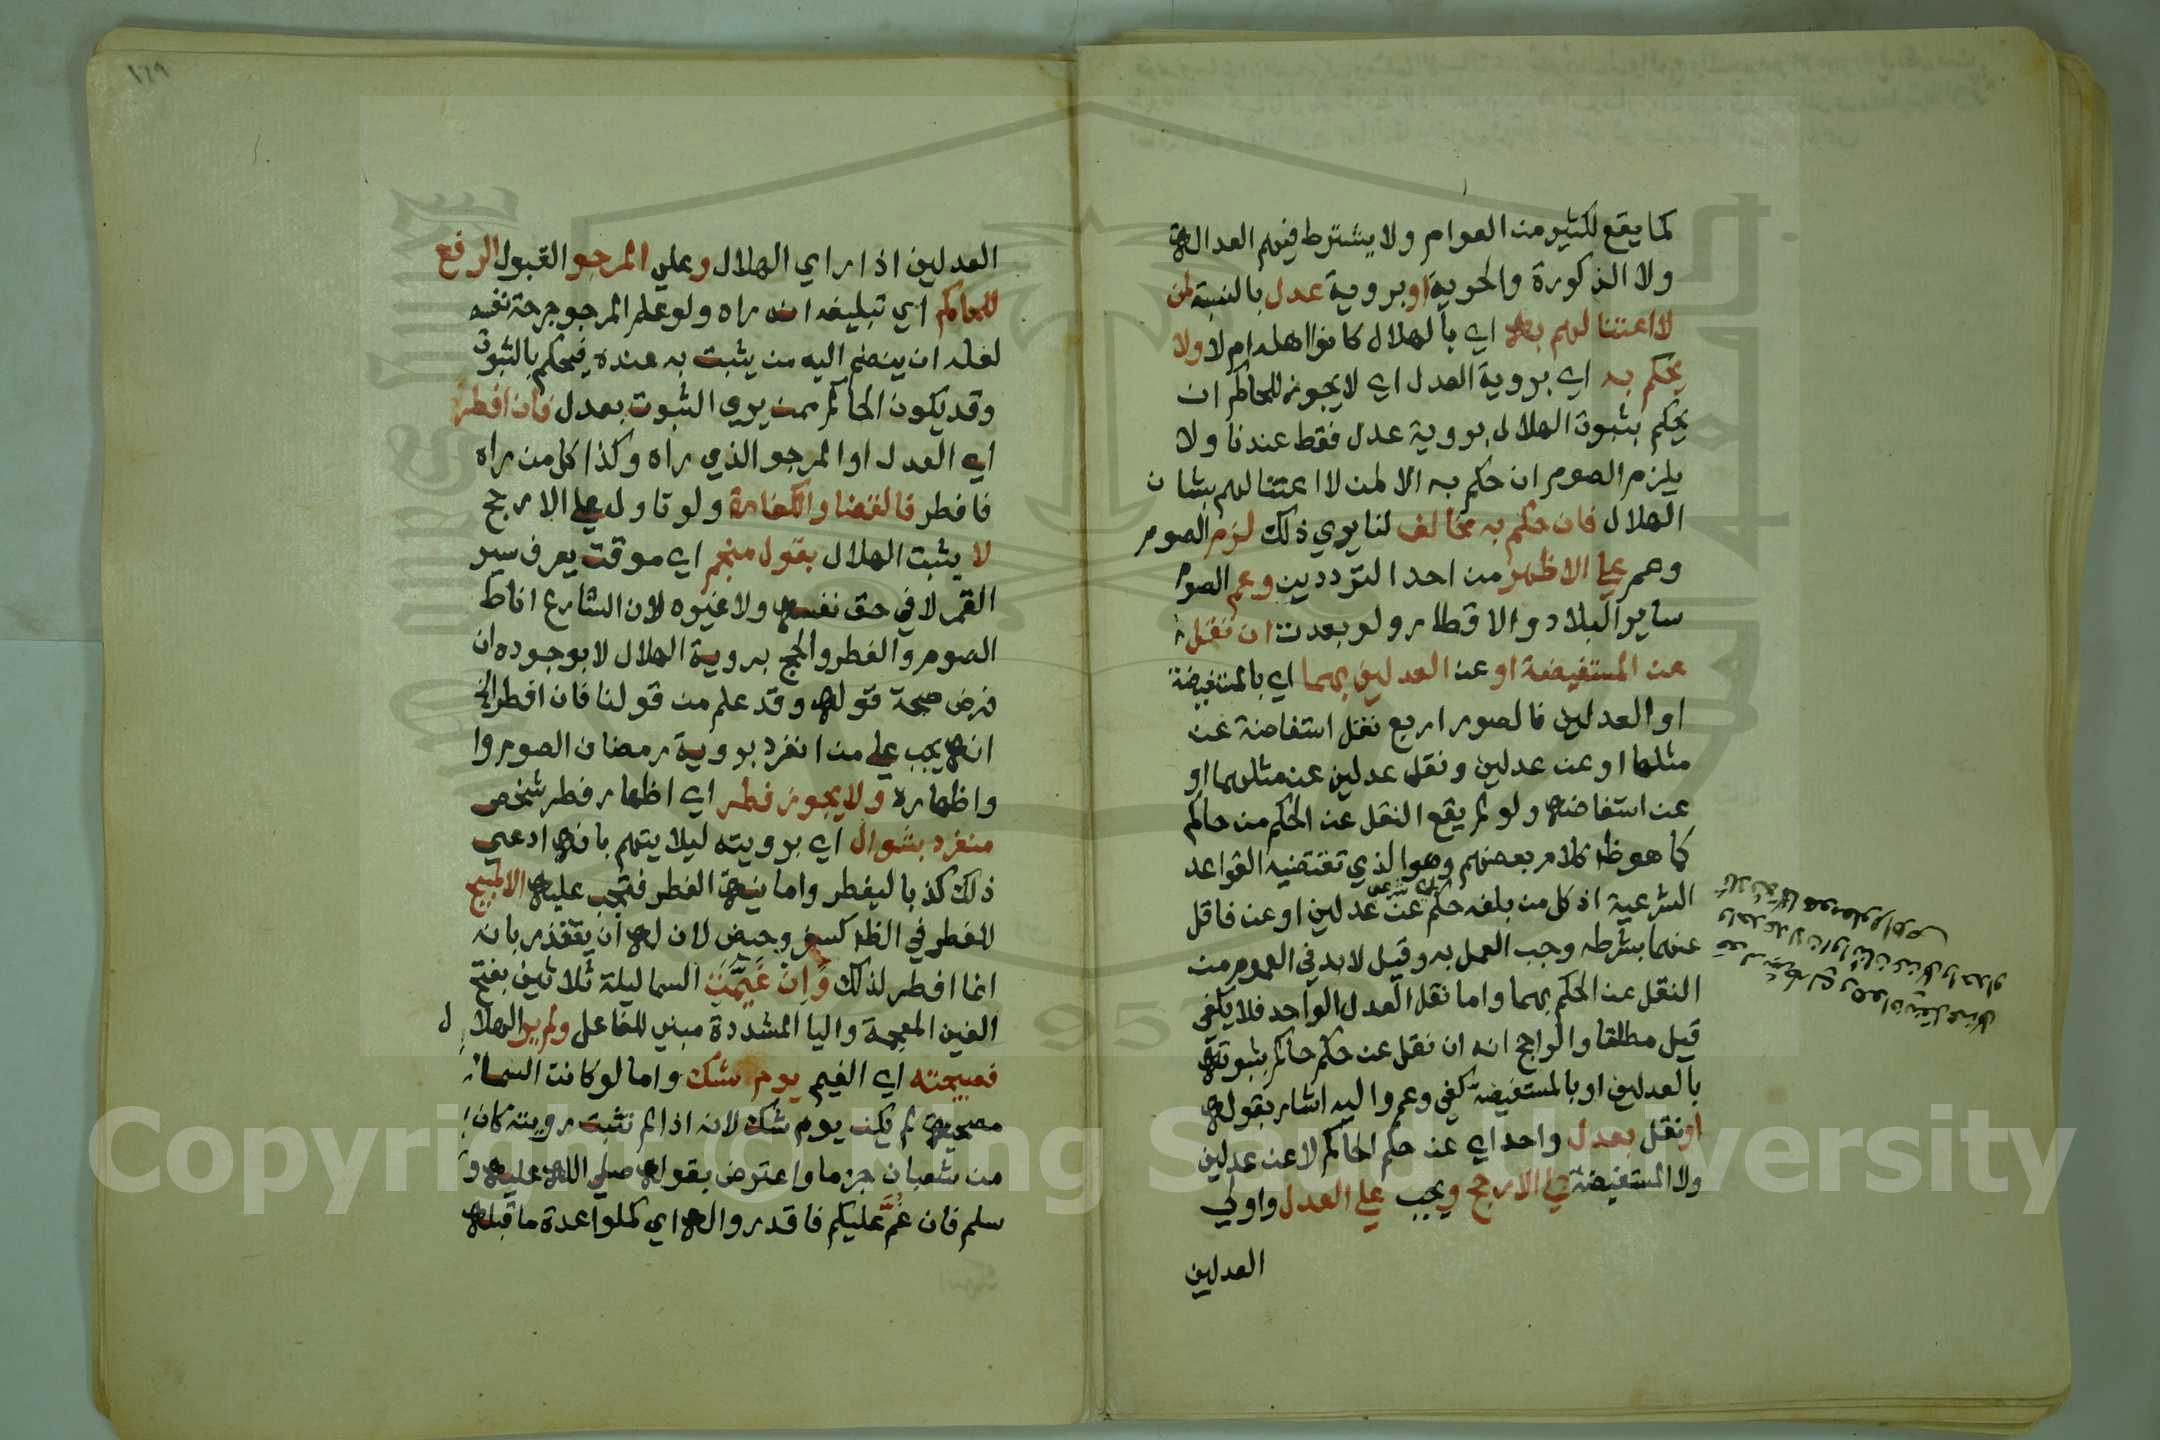 كما يقع لكثير من العوام ولا يشترط فيهم العدالة
ولا الذكورة والحرية او بروية عدل بالنسبة لمن
لا اعتنا لهم به اي بالهلال كانوا اهله ام لا ولا
يحكم به اي بروية العدل اي لا يجوز للحاكم ان
يحكم بثبوت الهلال بروية عدل فقط عندنا ولا
يلزم الصوم ان حكم به الا لمن لا اعتنا لهم بشان
الهلال فان حكم به مخالف لنا يري ذلك لزم الصوم
وعم علي الاظهر من احد الترددين وعم الصوم
ساير البلاد والاقطار ولو بعدت ان نقل
عن المستفيضة او عن العدلين بهما اي بالمستفيضة
او العدلين فالصور اربع نقل استفاضة عن
مثلها او عن عدلين ونقل عدلين عن مثلهما او
عن استفاضه ولو لم يقع النقل عن الحكم من حاكم
كما هو ظ كلام بعضهم وهو الذي تقتضيه القواعد
الشرعية اذ كل من بلغه حكم شرعي عن عدلين او عن ناقل
عنهما بشرطه وجب العمل به وقيل لا بد في العموم من
النقل عن الحكم بهما واما نقل العدل الواحد فلا يكفي
قيل مطلقا والراجح انه ان نقل عن حكم حاكم بثبوته
بالعدلين او بالمستفيضة كفي وعم واليه اشار بقوله
او نقل بعدل واحد اي عن حكم الحاكم لا عن عدلين
ولا المستفيضة علي الارجح ويجب علي العدل واولي
العدلين
١٦٩
العدلين اذا راي الهلال وعلي المرجو القبول الرفع
للحاكم اي تبليغه انه راه ولو علم المرجو جرحة نفسه
لعله ان ينضم اليه من يثبت به عنده فيحكم بالثبوت
وقد يكون الحاكم ممن يري الثبوت بعدل فان افطر
اي العدل او المرجو الذي راه وكذا كل من راه
فافطر فالقضا والكفارة ولو تاول علي الارجح
لا يثبت الهلال بقول منجم اي موقت يعرف سير
القمر لا في حق نفسه ولا غيره لان الشارع اناط
الصوم والفطر والحج بروية الهلال لا بوجوده ان
فرض صحة قوله وقد علم من قولنا فان افطر الخ
انه يجب علي من انفرد بروية رمضان الصوم وا
واظهاره ولا يجوز فطر اي اظهار فطر شخص
منفرد بشوال اي برويته ليلا يتهم بانه ادعي
ذلك كذبا ليفطر واما نية الفطر فتجب عليه الا لمبيح
للفطر في الظ كسفر وحيض لان له ان يعتذر بانه
انما افطر لذلك وَاِنْ غَيَّمَتِ السما ليلة ثلاثين بفتح
الغين المعجمة واليا المشددة مبني للفاعل ولم ير الهلال
فصبيحته اي الغيم يوم شك واما لو كانت السما
مصحية لم يكن يوم شك لانه اذا لم تثبت رويته كان
من شعبان جزما واعترض بقوله صلي الله عليه و
سلم فان غُمَّ عليكم فاقدروا له اي كملوا عدة ما قبله